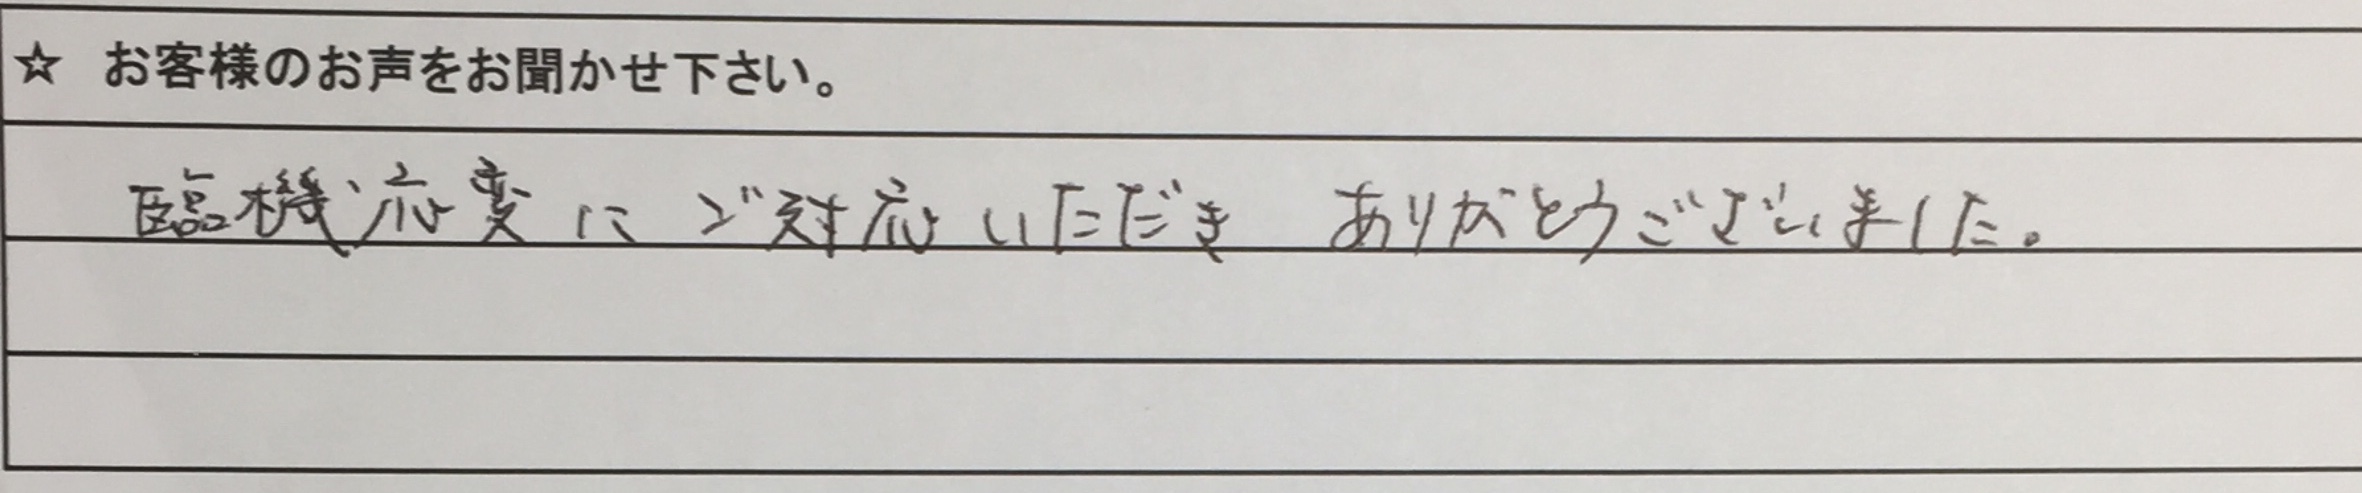 ☆ お客様のお声をお聞かせ下さい。
臨機応変にご対応いただき ありがとうございました。